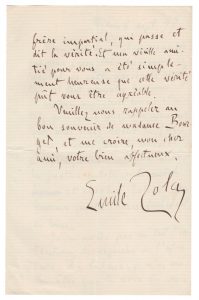 frère impartial, qui passe et
dit la vérité. Et ma vieille ami-
tié pour vous a été simple-
ment heureuse que cette vérité
pût vous être agréable.
Veuillez nous rappeler au
bon souvenir de madame Bour-
get, et me croire, mon cher
ami, votre bien affectueux.
Emile Zola